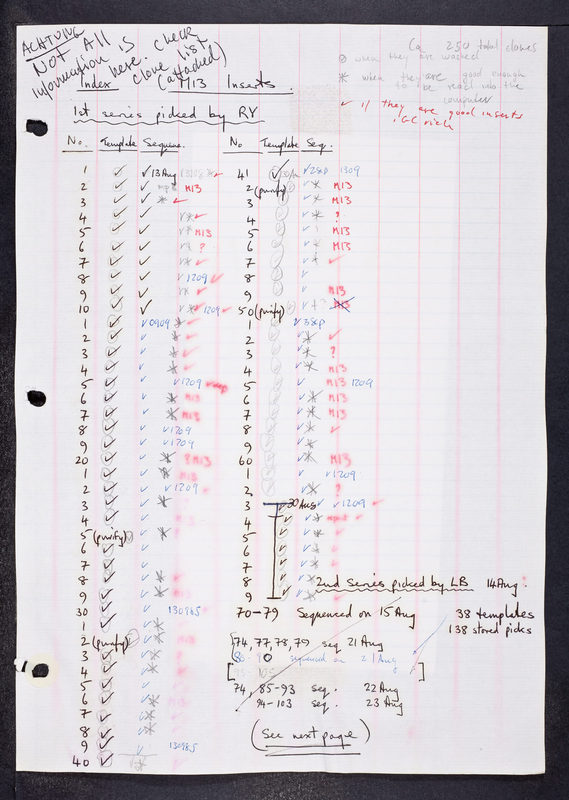 ACHTUNG
NOT All
information is
here. Check
clone list
(attached)
Index to M13 Inserts.
Ca 250 total clones
when they are washed
* when they are good enough
to be read into the
computer
✓ if they are good inserts
i.e. GC rich
1st series picked by RY
No. Template Sequence. No Template Seq.
1 ✓ ✓ 13 Aug 41 ✓ ✓ 2 Sep 1309
2 ✓ ✓ M13 2 (purify) ✓ * M13
3 ✓ ✓ * ✓ 3 ✓ * M13
4 ✓ ✓ ✓ * ✓ 4 ✓ * ?
5 ✓ ✓ ✓ * M13 5 ✓ M13
6 ✓ ✓ ? 6 ✓ * M13
7 ✓ ✓ ✓ * ✓ 7 ✓ * ✓
8 ✓ ✓ ✓ 1209 ✓ 8 ✓
9 ✓ ✓ ✓ * ✓ 9 M13
10 ✓ ✓ ✓ * 1209 ✓ 50 (purify) ✓ M13
1 ✓ ✓ 0909 * ✓ 1 ✓ 3 Sep
2 ✓ ✓ * ✓ 2 ✓ * ✓
3 ✓ ✓ * ✓ 3 ✓ * ?
4 ✓ ✓ * ✓ 4 ✓ * M13
5 ✓ ✓ 1209 5 ✓ M13 1209
6 ✓ ✓ * M13 6 ✓ * M13
7 ✓ ✓ * M13 7 ✓ * M13
8 ✓ ✓ 1209 8 ✓ * ✓
9 ✓ ✓ 1209 9 ✓ *
20 ✓ ✓ * ? M13 60 ✓ * M13
1 ✓ ✓ * M13 1 ✓ 1209
2 ✓ ✓ 1209 ✓ 2 ✓ * ?
3 ✓ ✓ * 3 ✓ 20 Aug ✓ * 1209 ✓
4 ✓ 4 ✓ ✓ *
5 (purify) ✓ * 5 ✓ ✓ *
6 ✓ 6 ✓ ✓ *
7 ✓ 7 ✓ ✓ *
8 ✓ ✓ * 8 ✓ ✓ *
9 ✓ ✓ * 9 ✓ ✓ *
2nd Series picked by LB 14 Aug.
30 ✓ ✓ 130985 70-79 Sequenced on 15 Aug
38 templates
138 stored picks
1 ✓ ✓ *
2 (purify) ✓ * 74, 77, 78, 79 seq 21 Aug
3 ✓ ✓ * sequenced on 21 Aug
4 ✓ ✓ *
5 ✓ ✓ 74, 85-93 seq. 22 Aug
6 ✓ ✓ * 94-103 seq. 23 Aug
7 ✓ ✓ *
8 ✓ ✓ * (See next page)
9 ✓ ✓ 130985
40 ✓ ✓ *